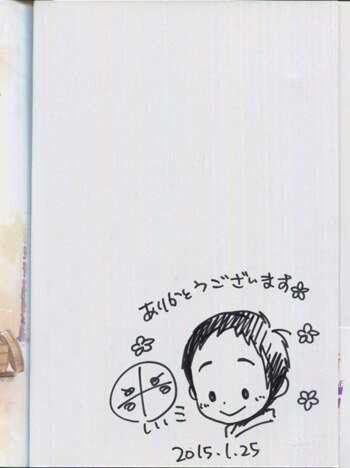 ありがとうございます
2015.1.25